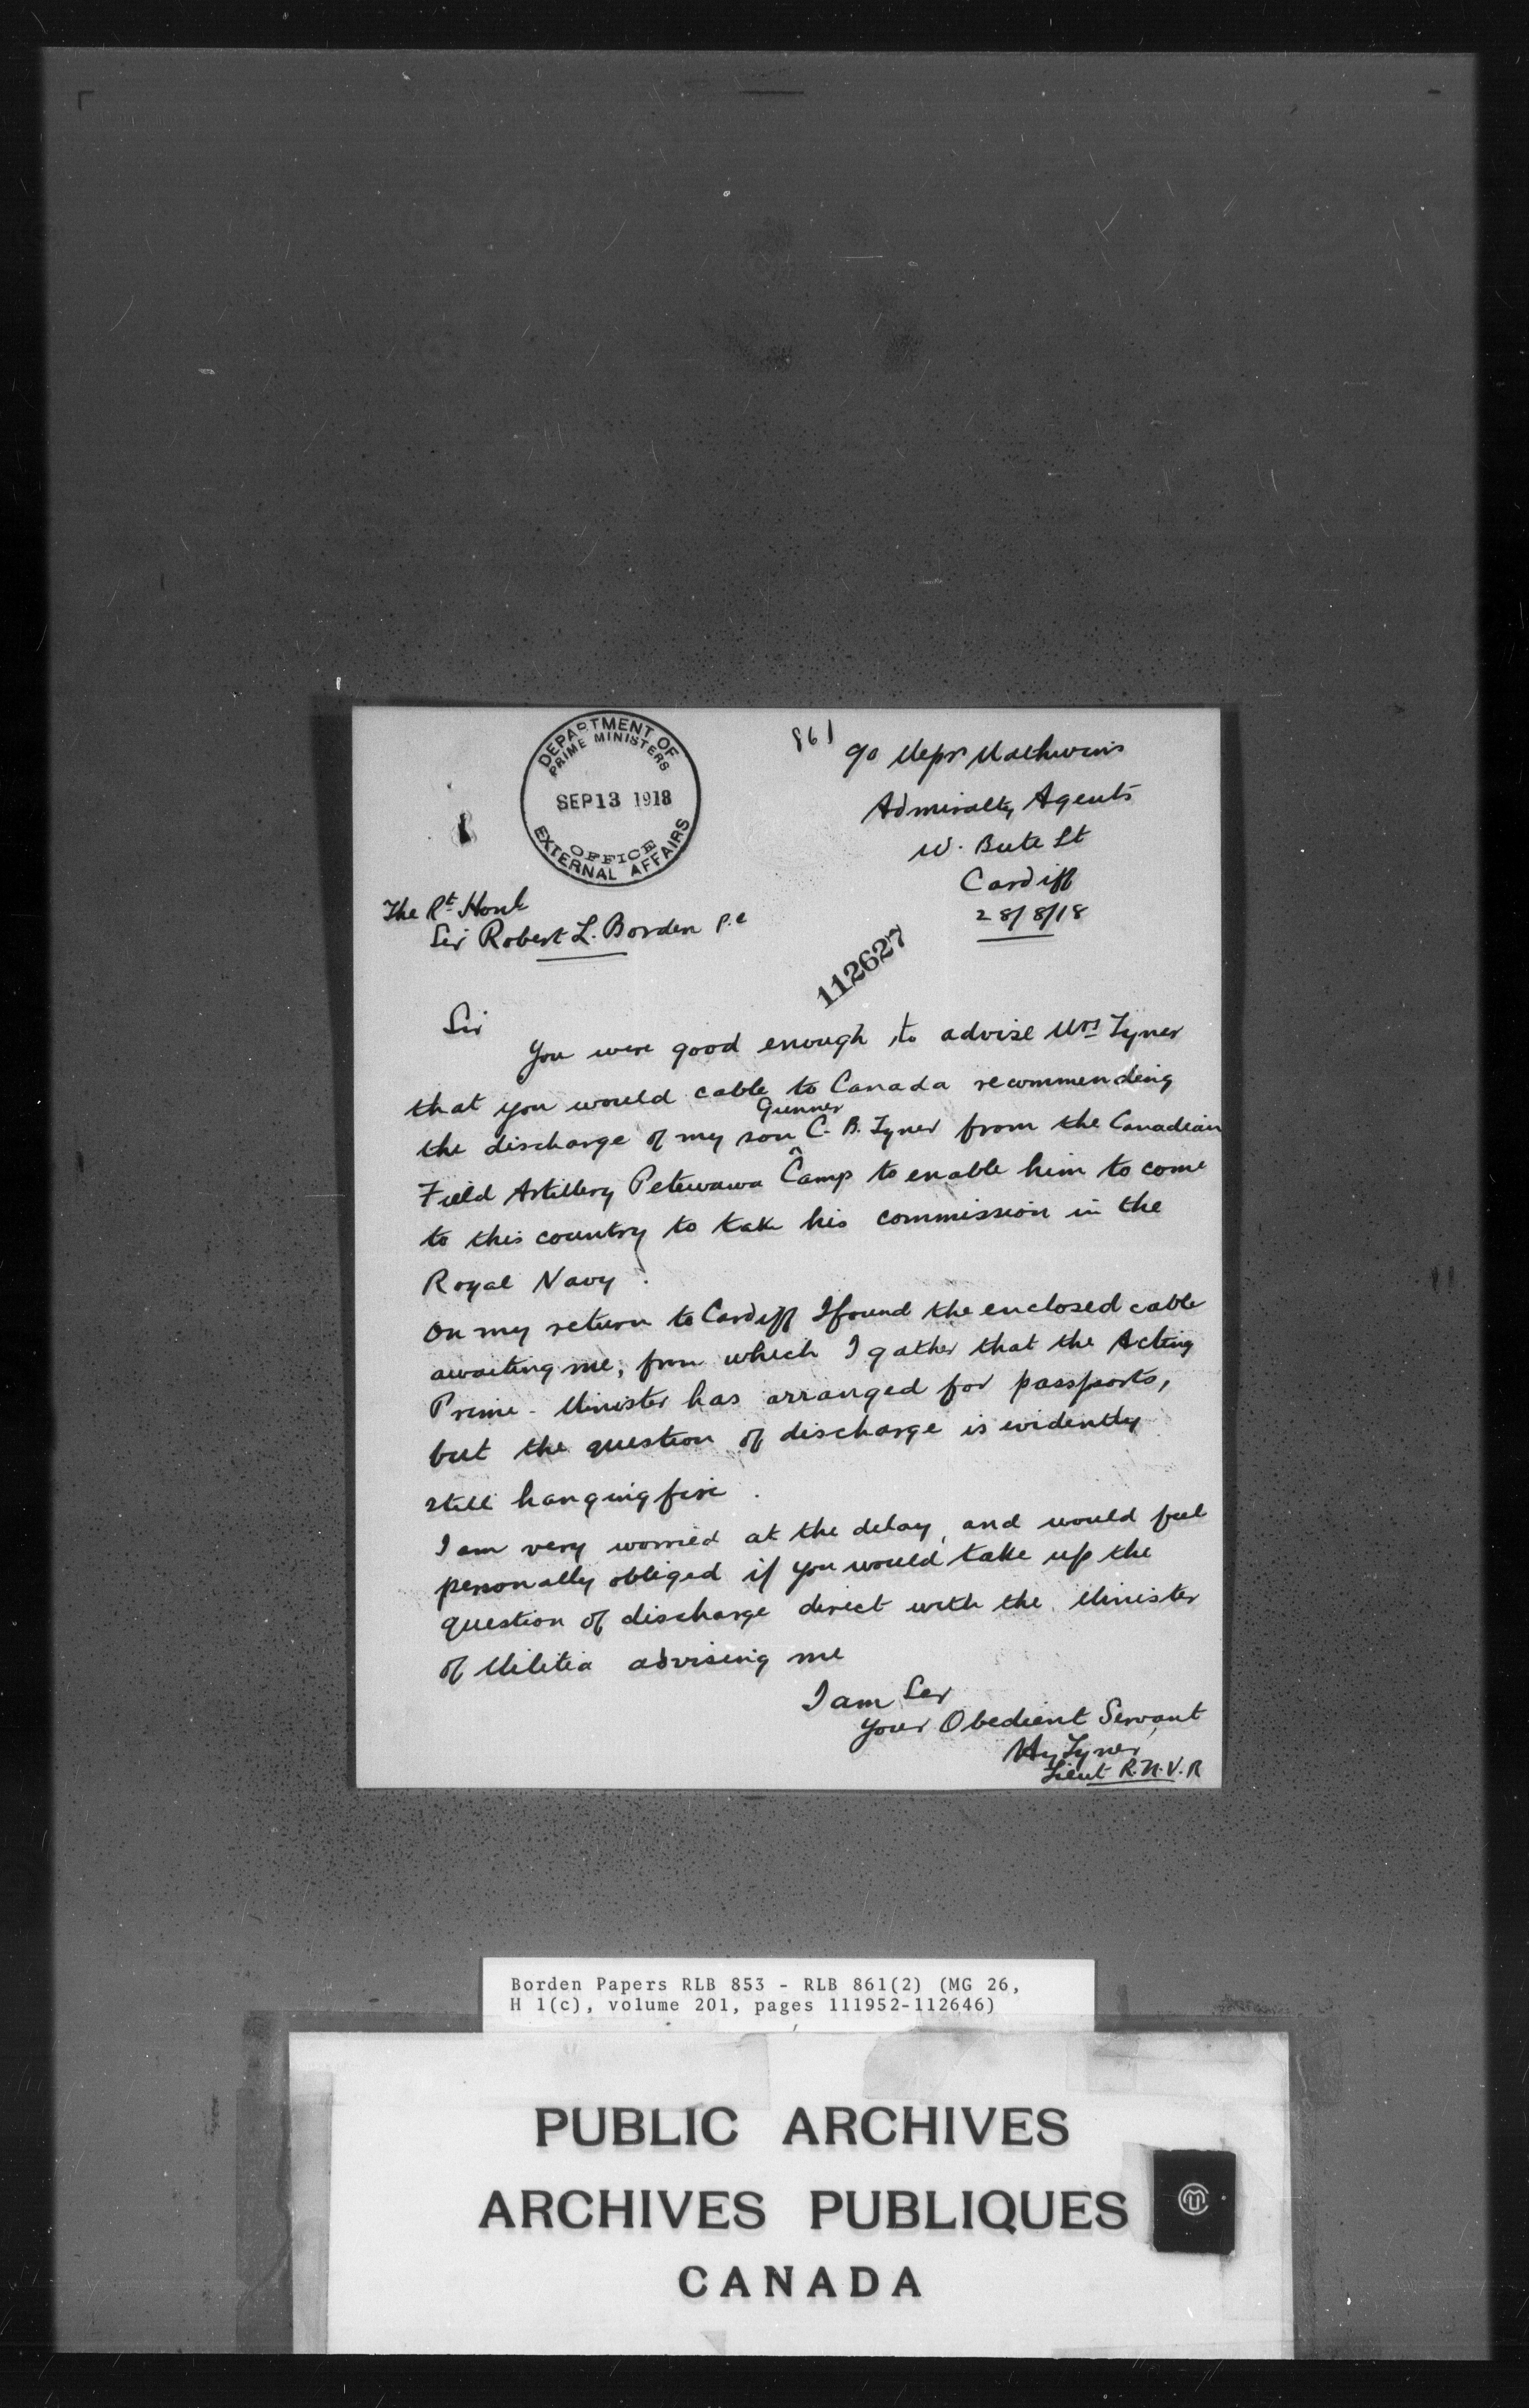 DEPARTMENT OF
PRIME MINISTERS
SEP 13 1918
OFFICE
EXTERNAL AFFAIRS
861
c/o Messrs
Admiralty Agents
W. Bute St
Cardiff
28/8/18
The Rt Honl
Sir Robert L. Borden P.C
112627
Sir
You were good enough to advise Mrs Tyner
that you would cable to Canada recommending
the discharge of my son Gunner C. B. Tyner from the Canadian
Field Artillery Petewawa Camp to enable him to come
to this country to take his commission in the
Royal Navy.
On my return to Cardiff I found the enclosed cable
awaiting me, from which I gather that the Acting
Prime-Minister has arranged for passports,
but the question of discharge is evidently
still hanging fire.
I am very worried at the delay, and would feel
personally obliged if you would take up the
question of discharge direct with the Minister
of Militia advising me
I am Sir
Your Obedient Servant
Hy Tyner
Lieut R.N.V.R
Borden Papers RLB 853 - RLB 861(2) (MG 26,
H 1(c), volume 201, pages 111952-112646)
PUBLIC ARCHIVES
ARCHIVES PUBLIQUES
CANADA